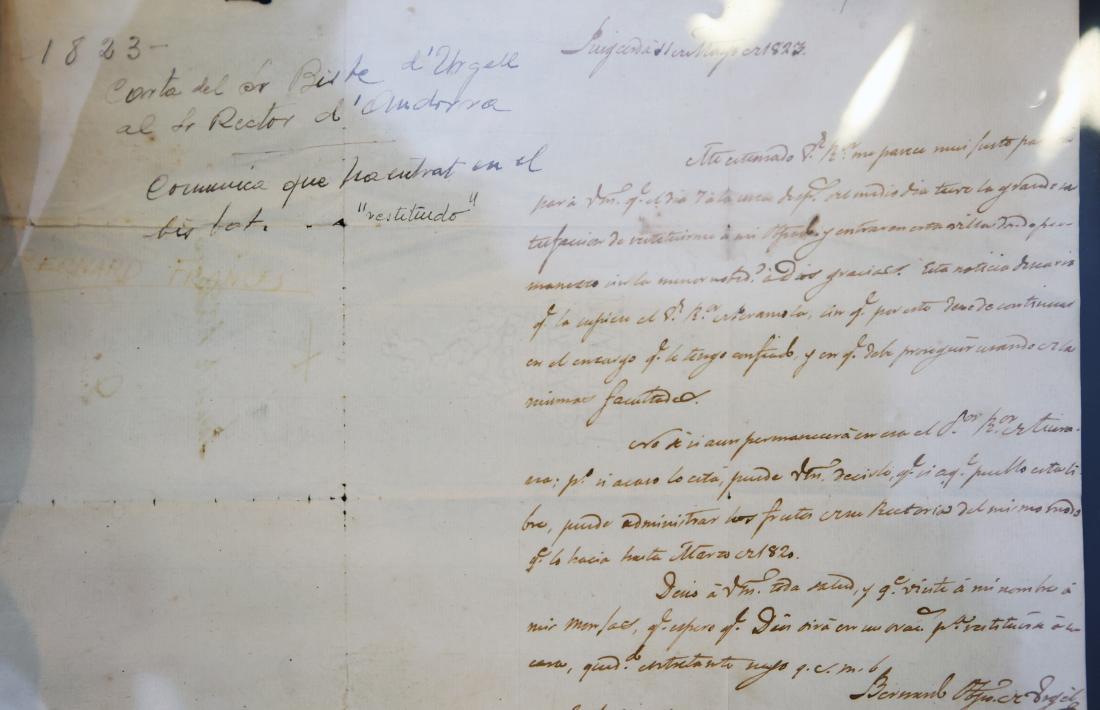 -1823-
Carta del Sr Bisbe d'Urgell
al Sr Rector d'Andorra
Comunica que ha entrat en el
bisbat. "restituido"
BERNARD FRANCES
Puigcerdá 11 de Mayo de 1823.
me parece muy justo
para Vm. qe. el dia 7 á la una desps. del medio dia tuve la grande sa
tisfaccion de restituirme á mi Obpdo. y entrar en esta villa donde per-
manezco sin la menor noved. á Dios gracias. Esta noticia desearia
qe. la supiese el Sr. Ror. de Peramola, sin qe. por esto dexe de continuar
en el encargo qe. le tengo confiado, y en qe. debe proseguir usando de las
mismas facultades.
No sé si aun permanecerá en esa el Sor. Ror. de
ps. si acaso lo está, puede Vm. decirlo, qe. si aql. pueblo esta li-
bre, puede administrar los frutos de su Rectoria del mismo modo
qe. lo hacia hasta Marzo de 1820.
Deseo á Vm. toda salud, y qe. visite á mi nombre á
mis Monjas, qe. espero qe. Dios oirá en su orac. restituirá á su
casa, quedo. entretanto suyo q. s. m. b.
Bernardo Obpo. de Urgel